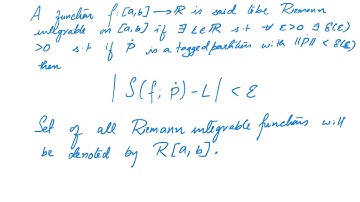 A function f: [a,b] ⟶ ℝ is said to be Riemann
integrable on [a,b] if ∃ L∈ℝ s.t ∀ ε>0 ∃ δ(ε)
>0 s.t if Ṗ is a tagged partition with ||Ṗ|| < δ(ε)
then
| S(f; Ṗ) - L | < ε
Set of all Riemann integrable functions will
be denoted by R[a,b].